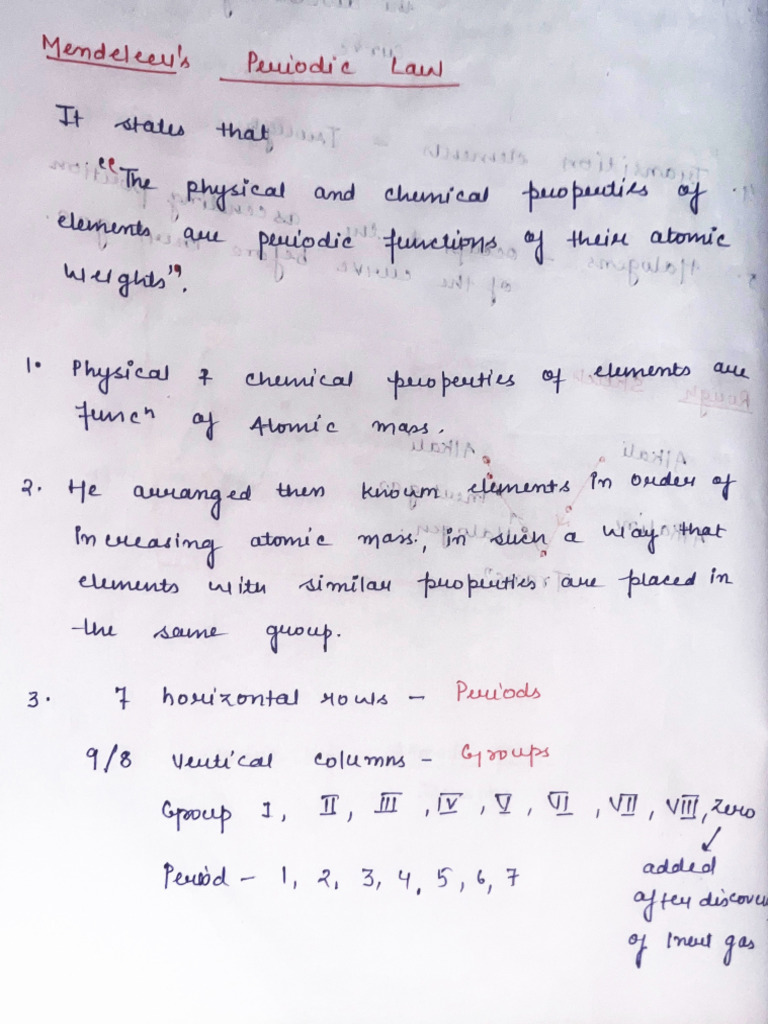 Mendeleev's Periodic Law
It states that,
"The physical and chemical properties of
elements are periodic functions of their atomic
weights".
1. Physical & chemical properties of elements are
funcⁿ of Atomic mass.
2. He arranged then known elements in order of
increasing atomic mass, in such a way that
elements with similar properties are placed in
the same group.
3. 7 horizontal rows - Periods
9/8 vertical columns - Groups
Group I, II, III, IV, V, VI, VII, VIII, zero
Period - 1, 2, 3, 4, 5, 6, 7
added
after discove
of inert gas